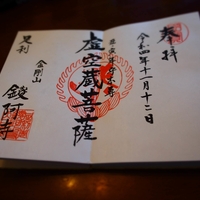 奉拝
令和四年十一月十二日
虚空蔵菩薩
足利
金剛山
鑁阿寺